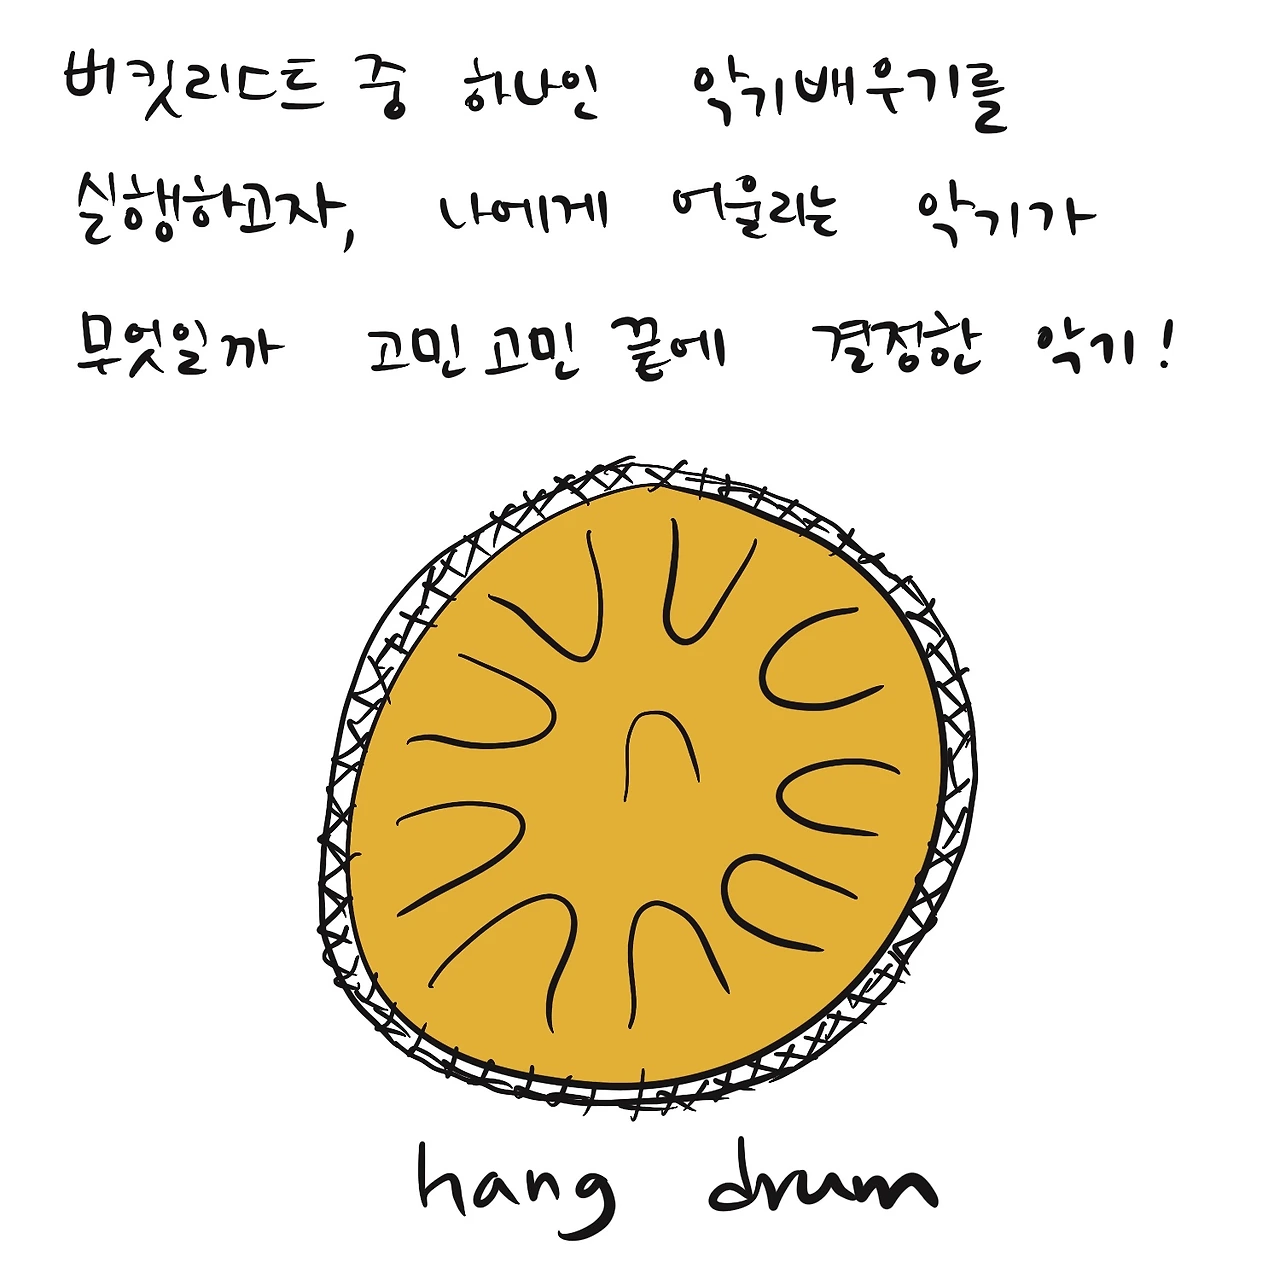 버킷리스트 중 하나인 악기배우기를
실행하고자, 나에게 어울리는 악기가
무엇일까 고민고민 끝에 결정한 악기!
hang drum